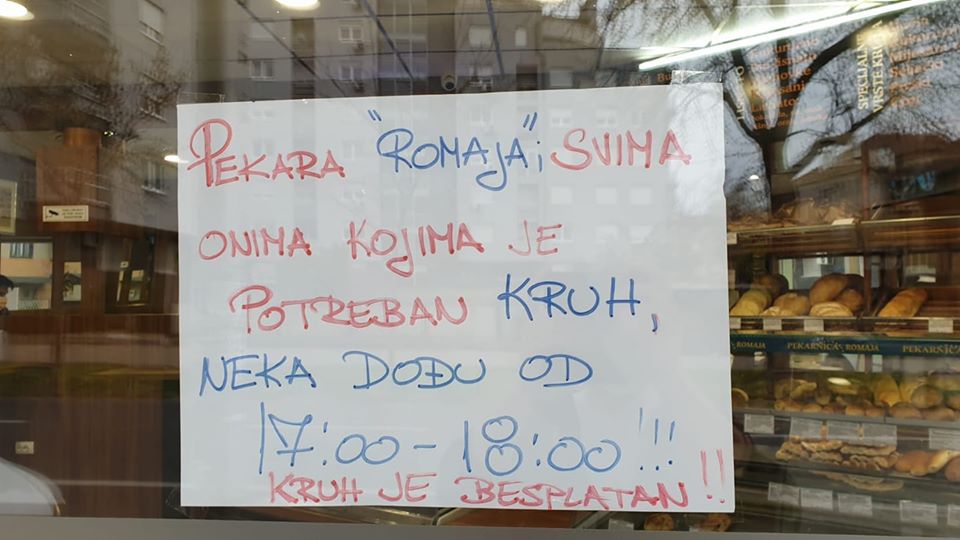 PEKARA "ROMAJA"; SVIMA
ONIMA KOJIMA JE
POTREBAN KRUH,
NEKA DOĐU OD
17:00-18:00!!!
KRUH JE BESPLATAN!!
SPECIJALNE
VRSTE KRUHA
ROMAJA
PEKARNICA ROMAJA
PEKARNICA